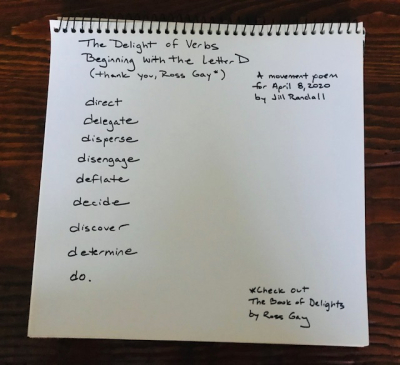 The Delight of Verbs
Beginning with the Letter D
(thank you, Ross Gay*)
A movement poem
for April 8, 2020
by Jill Randall
direct
delegate
disperse
disengage
deflate
decide
discover
determine
do.
*Check out
The Book of Delights
by Ross Gay